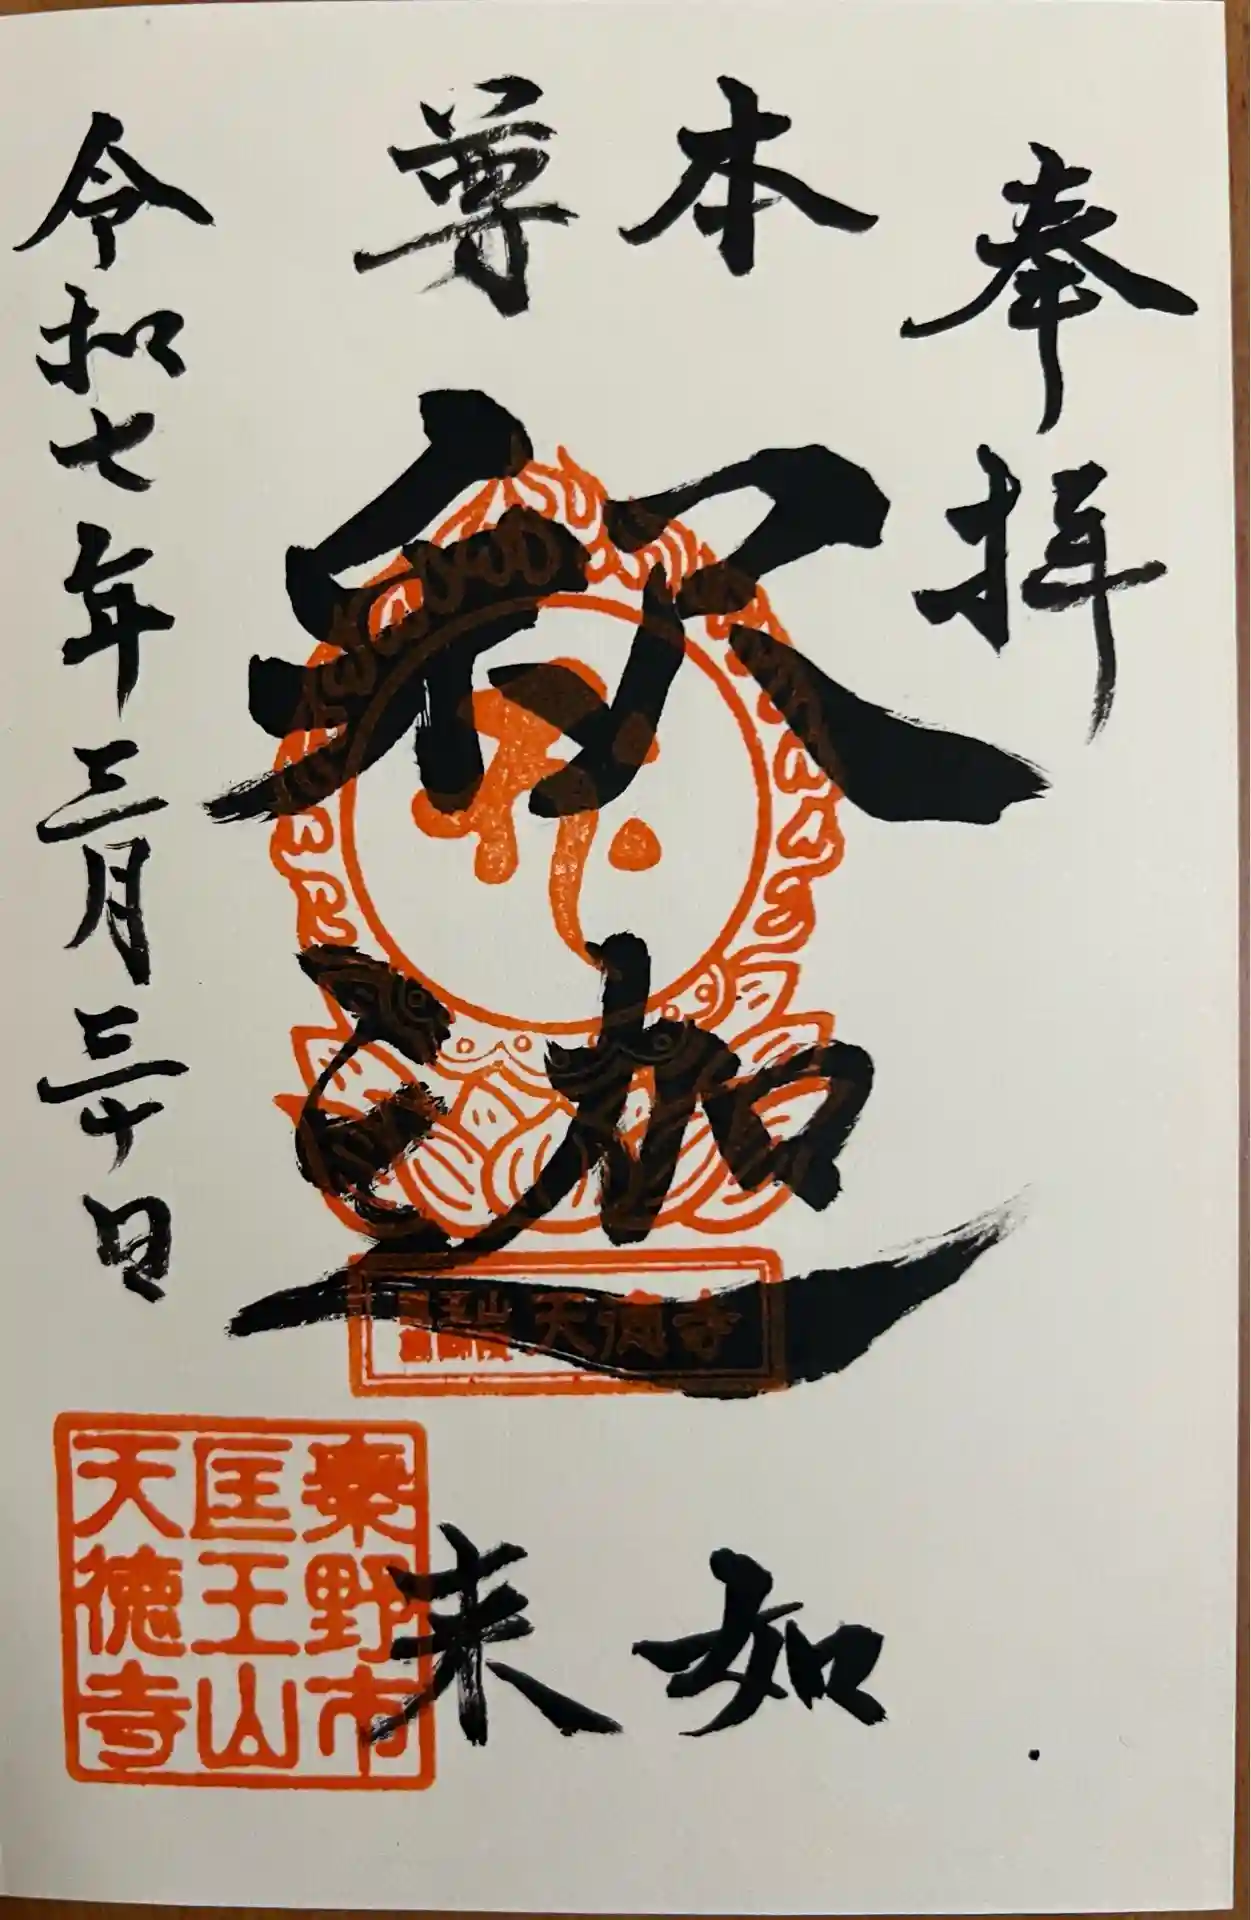 奉拝
本尊
釈迦
如来
令和七年三月三十日
天徳寺
秦野市
匡王山
天徳寺